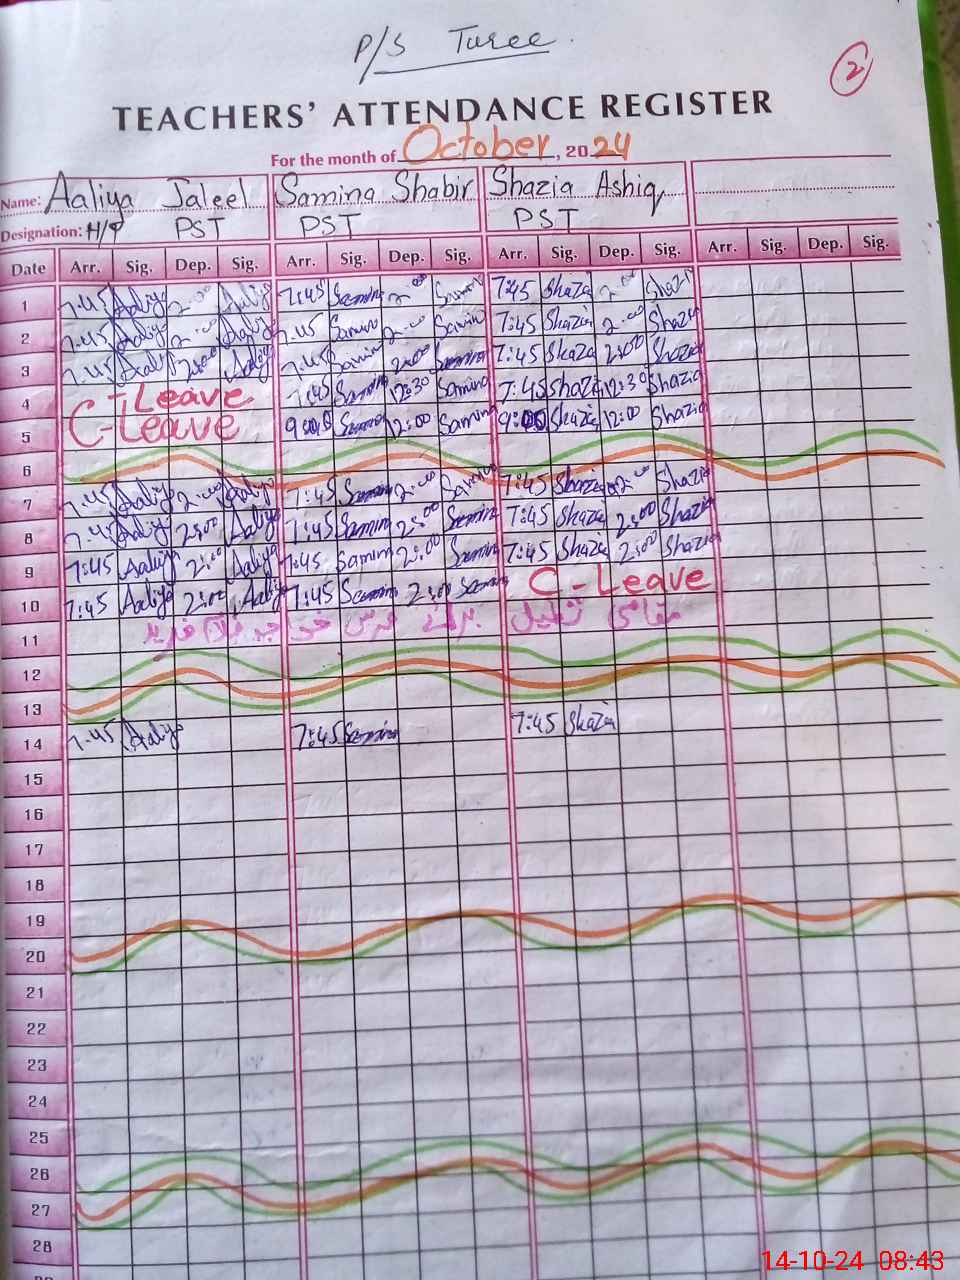 P/S Turee.
2
TEACHERS' ATTENDANCE REGISTER
For the month of October, 2024
Name: Aaliya Jaleel Samina Shabir Shazia Ashiq
Designation: H/T PST PST PST
Date Arr. Sig. Dep. Sig. Arr. Sig. Dep. Sig. Arr. Sig. Dep. Sig. Arr. Sig. Dep. Sig.
1 7:45 Aaliya 2:00 Aaliya 7:45 Samina 2:00 Samina 7:45 Shazia 2:00 Shazia
2 7:45 Aaliya 2:00 Aaliya 7:45 Samina 2:00 Samina 7:45 Shazia 2:00 Shazia
3 7:45 Aaliya 2:00 Aaliya 7:45 Samina 2:00 Samina 7:45 Shazia 2:00 Shazia
4 C-Leave 7:45 Samina 12:30 Samina 7:45 Shazia 12:30 Shazia
5 C-Leave 9:00 Samina 12:00 Samina 9:00 Shazia 12:00 Shazia
6
7 7:45 Aaliya 2:00 Aaliya 7:45 Samina 2:00 Samina 7:45 Shazia 2:00 Shazia
8 7:45 Aaliya 2:00 Aaliya 7:45 Samina 2:00 Samina 7:45 Shazia 2:00 Shazia
9 7:45 Aaliya 2:00 Aaliya 7:45 Samina 2:00 Samina 7:45 Shazia 2:00 Shazia
10 7:45 Aaliya 2:00 Aaliya 7:45 Samina 2:00 Samina C-Leave
11 مقامی تعطیل برائے عرس خواجہ غلام فرید
12
13
14 7:45 Aaliya 7:45 Samina 7:45 Shazia
15
16
17
18
19
20
21
22
23
24
25
26
27
28
14-10-24 08:43